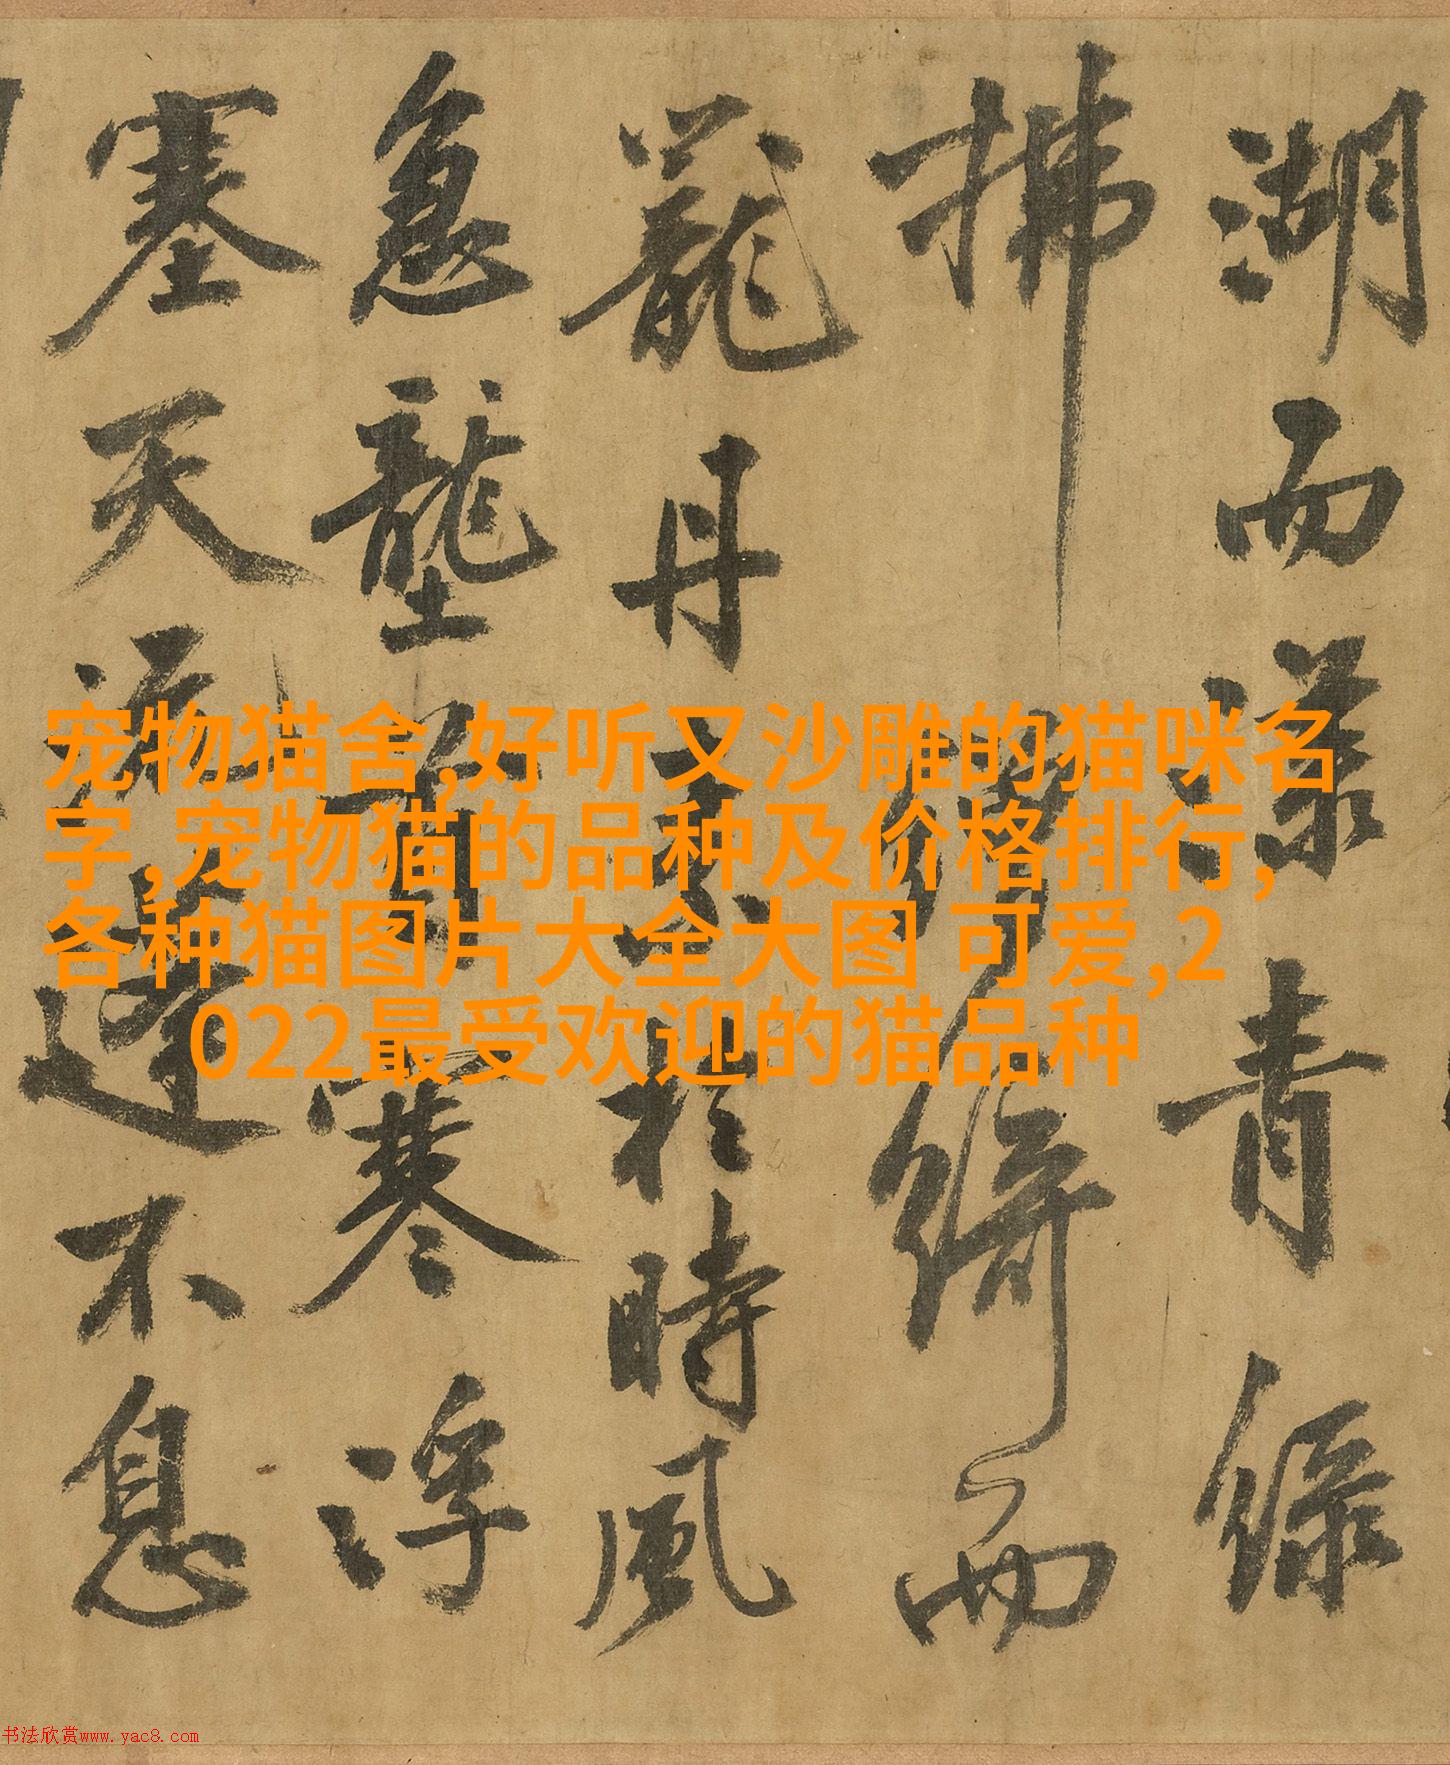 湖而漾青緑
拂綺而
籠丹素於時風
急壟首寒浮
塞天流不息
宠物猫舍,好听又沙雕的猫咪名
字,宠物猫的品种及价格排行,
各种猫图片大全大图 可爱,2
022最受欢迎的猫品种
书法欣赏www.yac8.com